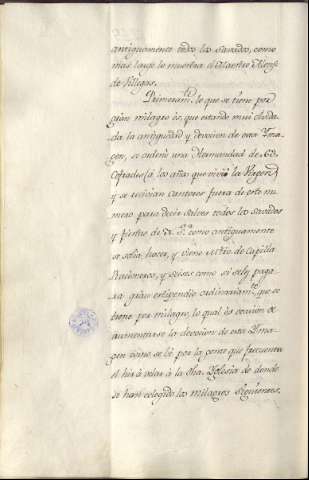 antiguamente todos los Savados, como
mas largo lo muestra el Maestro Alonso
de Villegas.
Primeram.te lo que se tiene por
gran milagro es, que estando mui olvida
da la antiguedad y devocion de esta Yma
gen, se ordenó una Hermandad de 63.
Cofrades (á los años que vivió la Virgen)
y se recivian cantores fuera de este nu
mero para decir Salves todos los Savados
y fiestas de N. S.ª como antiguamente
se solia hacer, y viene Mtro de Capilla
Racioneros, y Seises como si se les paga
ra gran estipendio ordinariam.te que se
tiene por milagro, lo qual es ocasion de
aumentarse la devocion de esta Yma
gen como se vé por la gente que frecuenta
el hir á velar á la dha. Yglesia de donde
se han colegido los milagros siguientes.